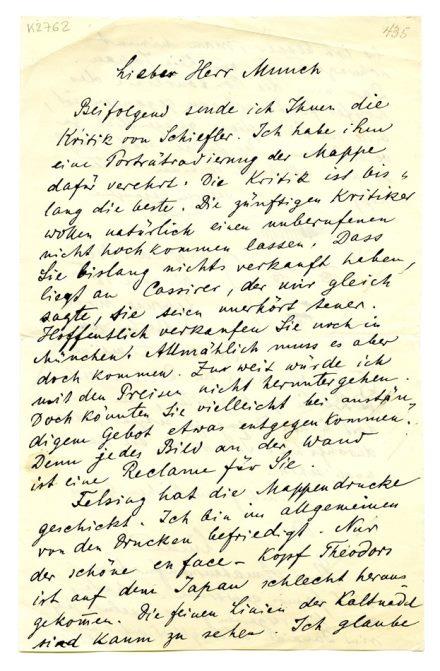 K2762
435
Lieber Herr Munch
Beifolgend sende ich Ihnen die
Kritik von Schiefler. Ich habe ihm
eine Porträtradierung der Mappe
dafür verehrt. Die Kritik ist bis„
lang die beste. Die zünftigen Kritiker
wollen natürlich einen unberufenen
nicht hochkommen lassen. Dass
Sie bislang nichts verkauft haben,
liegt an Cassirer, der mir gleich
sagte, Sie seien unerhört teuer.
Hoffentlich verkaufen Sie noch in
München! Allmählich muss es aber
doch kommen. Zur weit würde ich
mit den Preisen nicht heruntergehen.
Doch könnten Sie vielleicht bei anstän,
digem Gebot etwas entgegenkommen.
Denn jedes Bild an der Wand
ist eine Reclame für Sie.
Felsing hat die Mappendrucke
geschickt. Ich bin im allgemeinen
von den Drucken befriedigt. Nur
der schöne en face-Kopf Theodors
ist auf dem Japan schlecht heraus
gekom̄en. Die feinen Linien der Kaltnadel
sind kaum zu sehen. Ich glaube